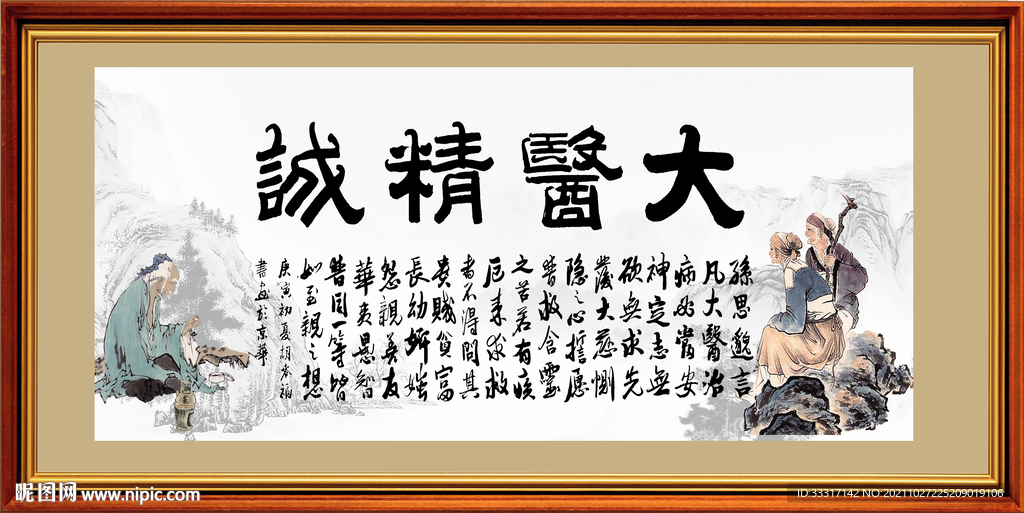 大醫精誠
孫思邈言
凡大醫治
病必當安
神定志無
欲無求先
發大慈惻
隐之心誓愿
普救含靈
之苦若有疾
厄来求救
者不得問其
貴賤貧富
長幼妍媸
怨親善友
華夷愚智
普同一等皆
如至親之想
庚寅初夏胡
書畫於京華
昵图网 www.nipic.com
ID:33317142 NO:20211027225209019106